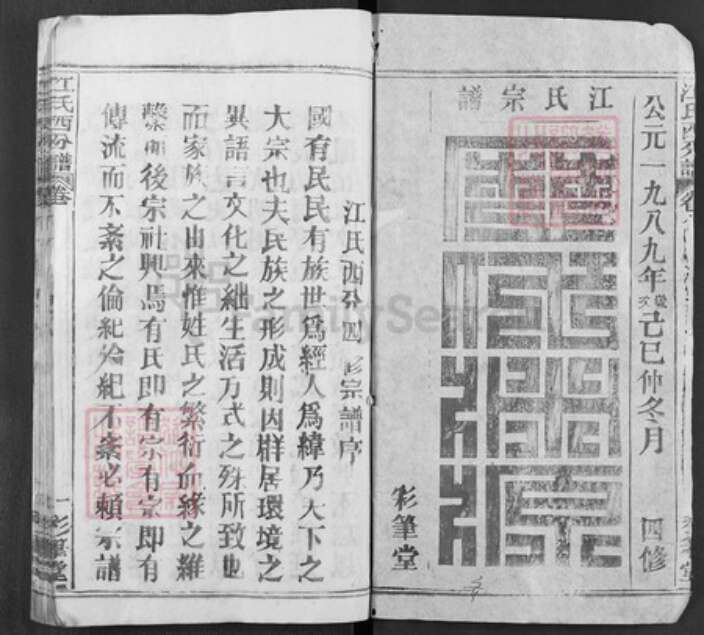 江氏宗譜
公元一九八九年歲次己巳仲冬月
四修
彩筆堂
江氏西分四修宗譜序
國有民民有族世爲經人爲緯乃天下之
大宗也夫民族之形成則因群居環境之
異語言文化之絀生活方式之殊所致也
而家族之由來惟姓氏之繁衍血緣之維
繫而後宗社興焉有氏即有宗有宗即有
傳流而不紊之倫紀倫紀不紊必賴宗譜
江氏西分譜
卷
一
彩筆堂
FamilySearch